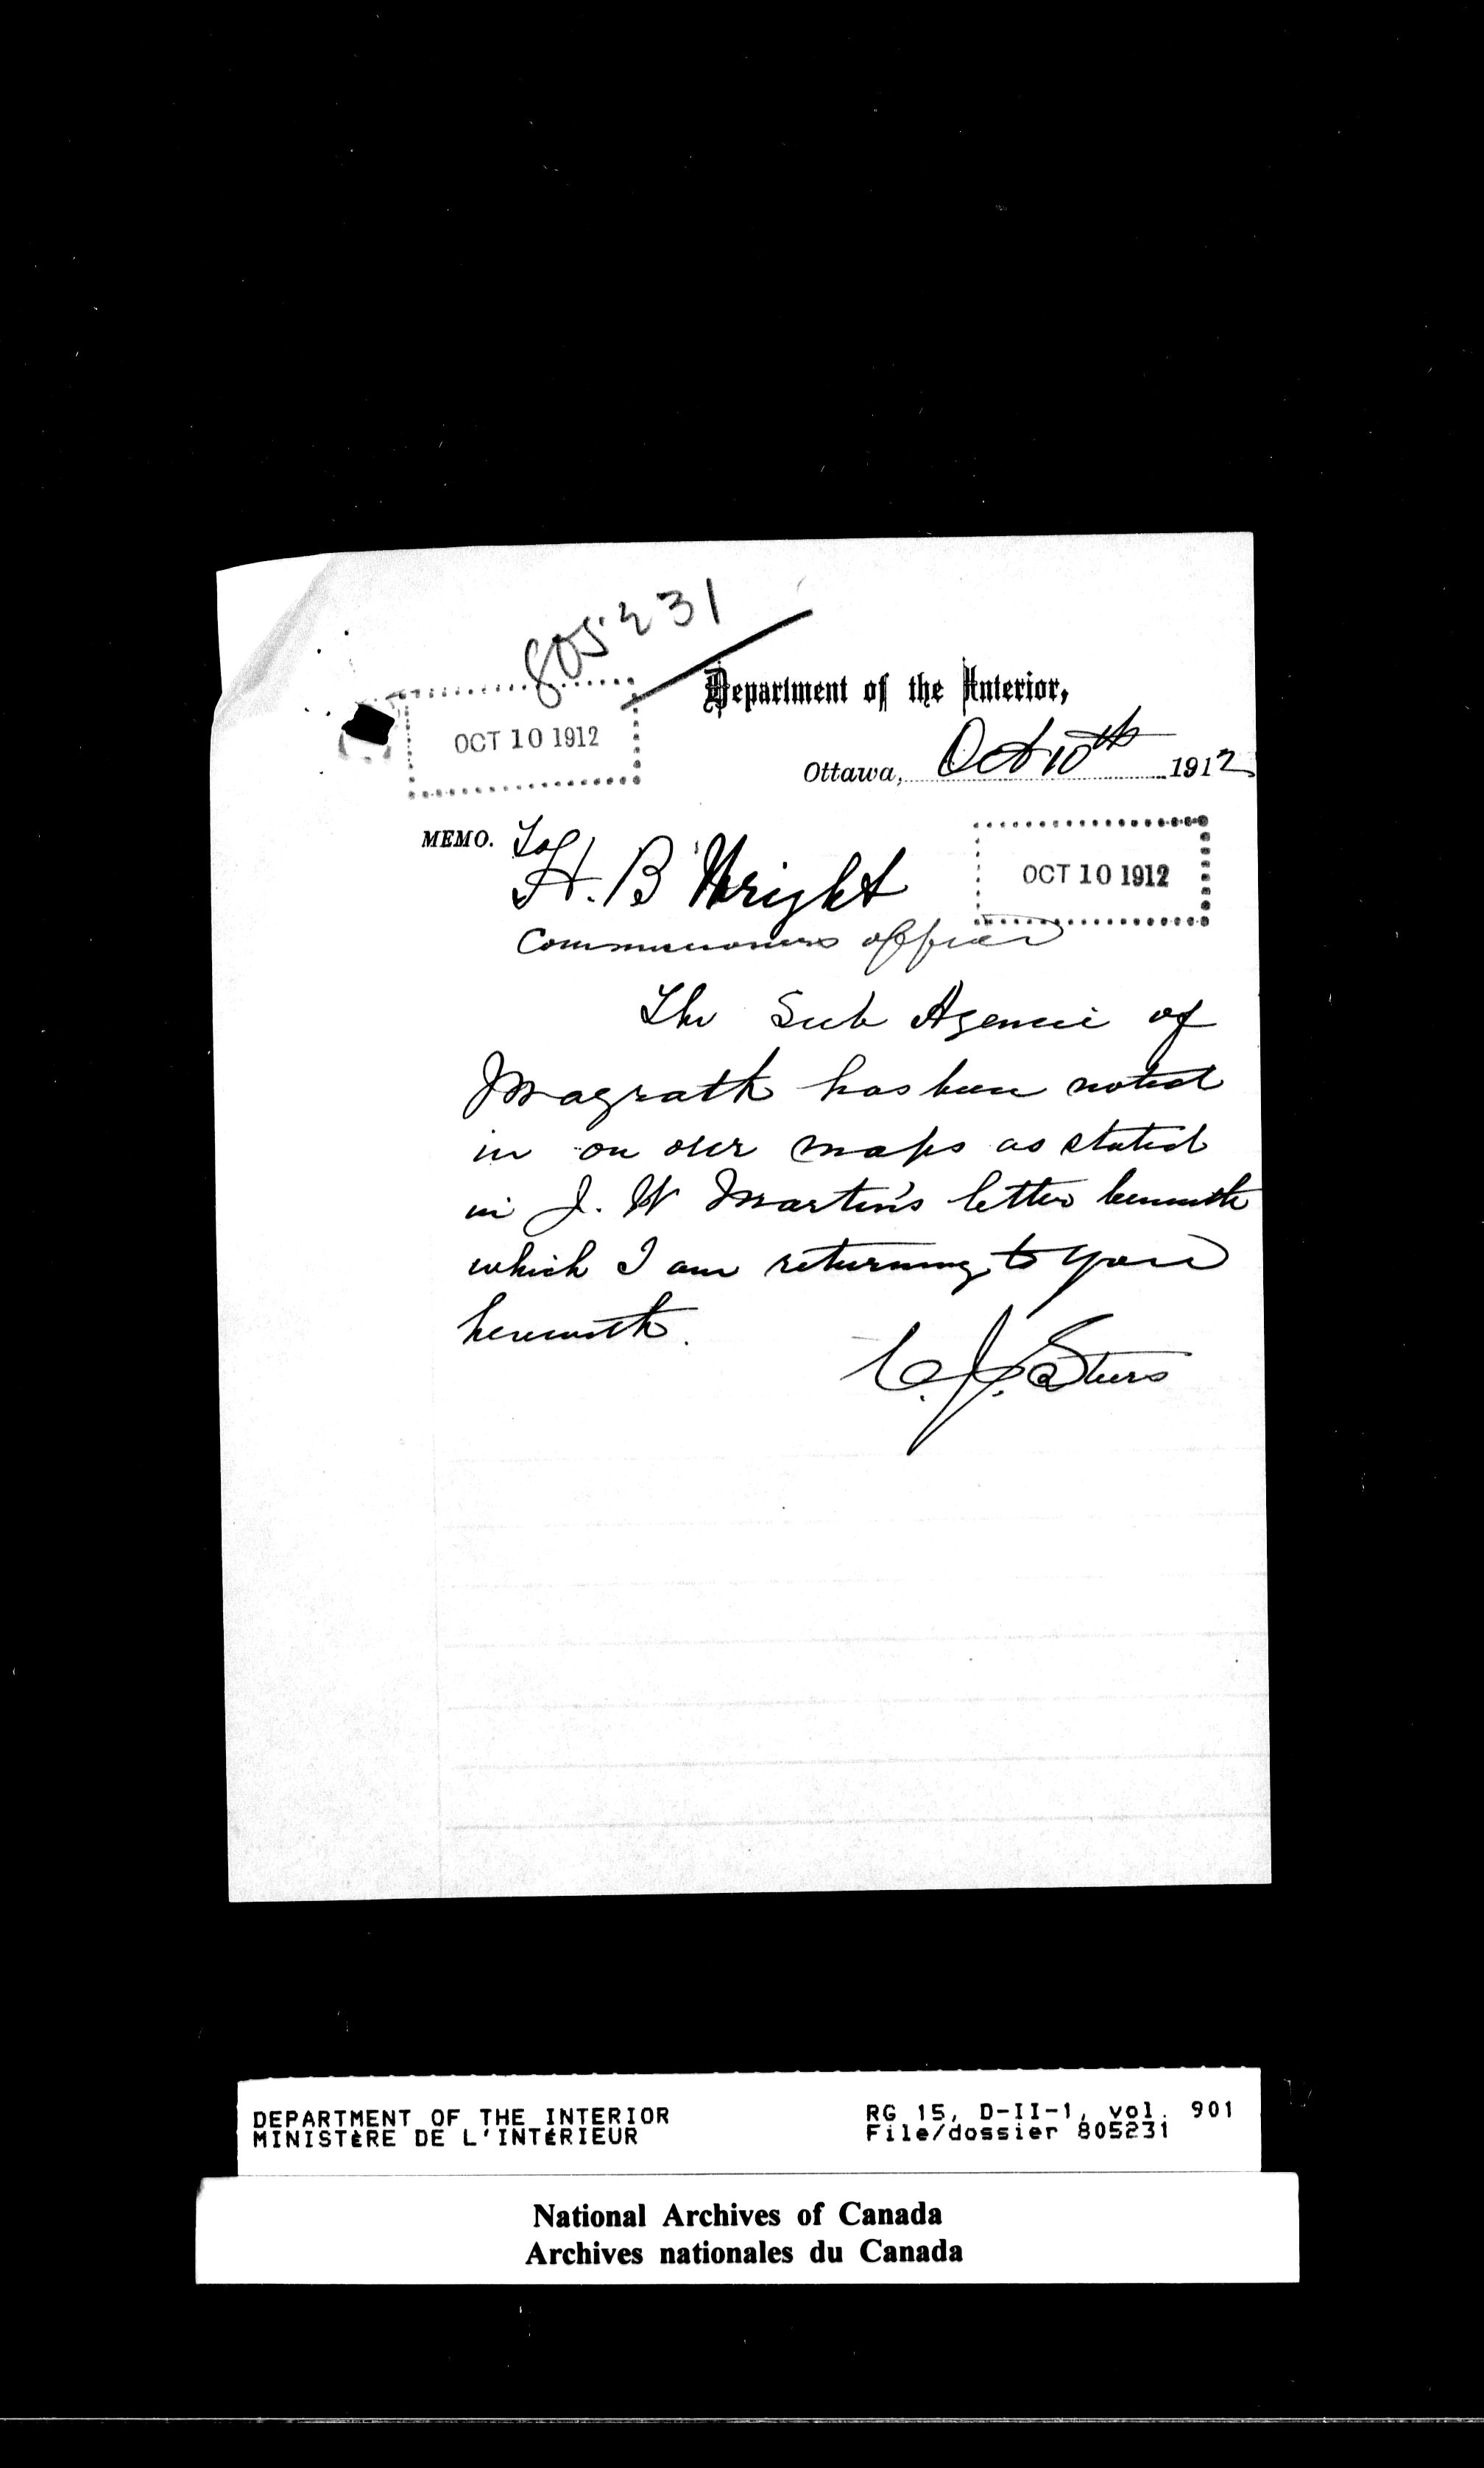 805231
Department of the Interior,
OCT 10 1912
Ottawa, Oct 10th 1912
MEMO. To
H. B Wright
OCT 10 1912
Commissioners office
The Sub Agencie of
Magrath has been noted
in on our maps as stated
in J. W Martin's letter
which I am returning to you
herewith.
C. J.
DEPARTMENT OF THE INTERIOR
MINISTÈRE DE L'INTÉRIEUR
RG 15, D-II-1, vol. 901
File/dossier 805231
National Archives of Canada
Archives nationales du Canada